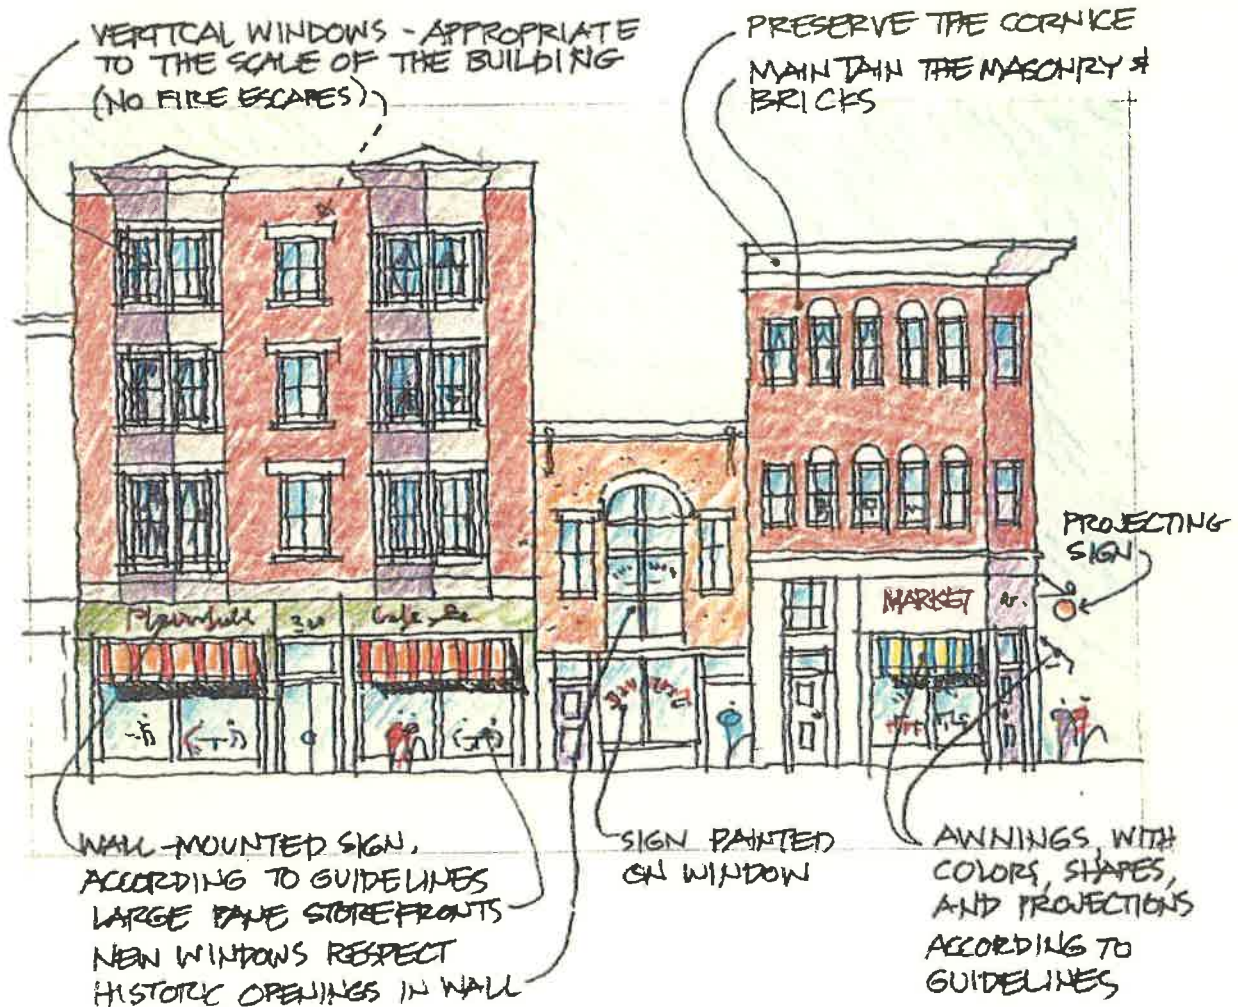 VERTICAL WINDOWS - APPROPRIATE
TO THE SCALE OF THE BUILDING
(NO FIRE ESCAPES)
PRESERVE THE CORNICE
MAINTAIN THE MASONRY &
BRICKS
PROJECTING
SIGN
MARKET
WALL-MOUNTED SIGN,
ACCORDING TO GUIDELINES
LARGE PANE STOREFRONTS
NEW WINDOWS RESPECT
HISTORIC OPENINGS IN WALL
SIGN PAINTED
ON WINDOW
AWNINGS, WITH
COLORS, SHAPES,
AND PROJECTIONS
ACCORDING TO
GUIDELINES